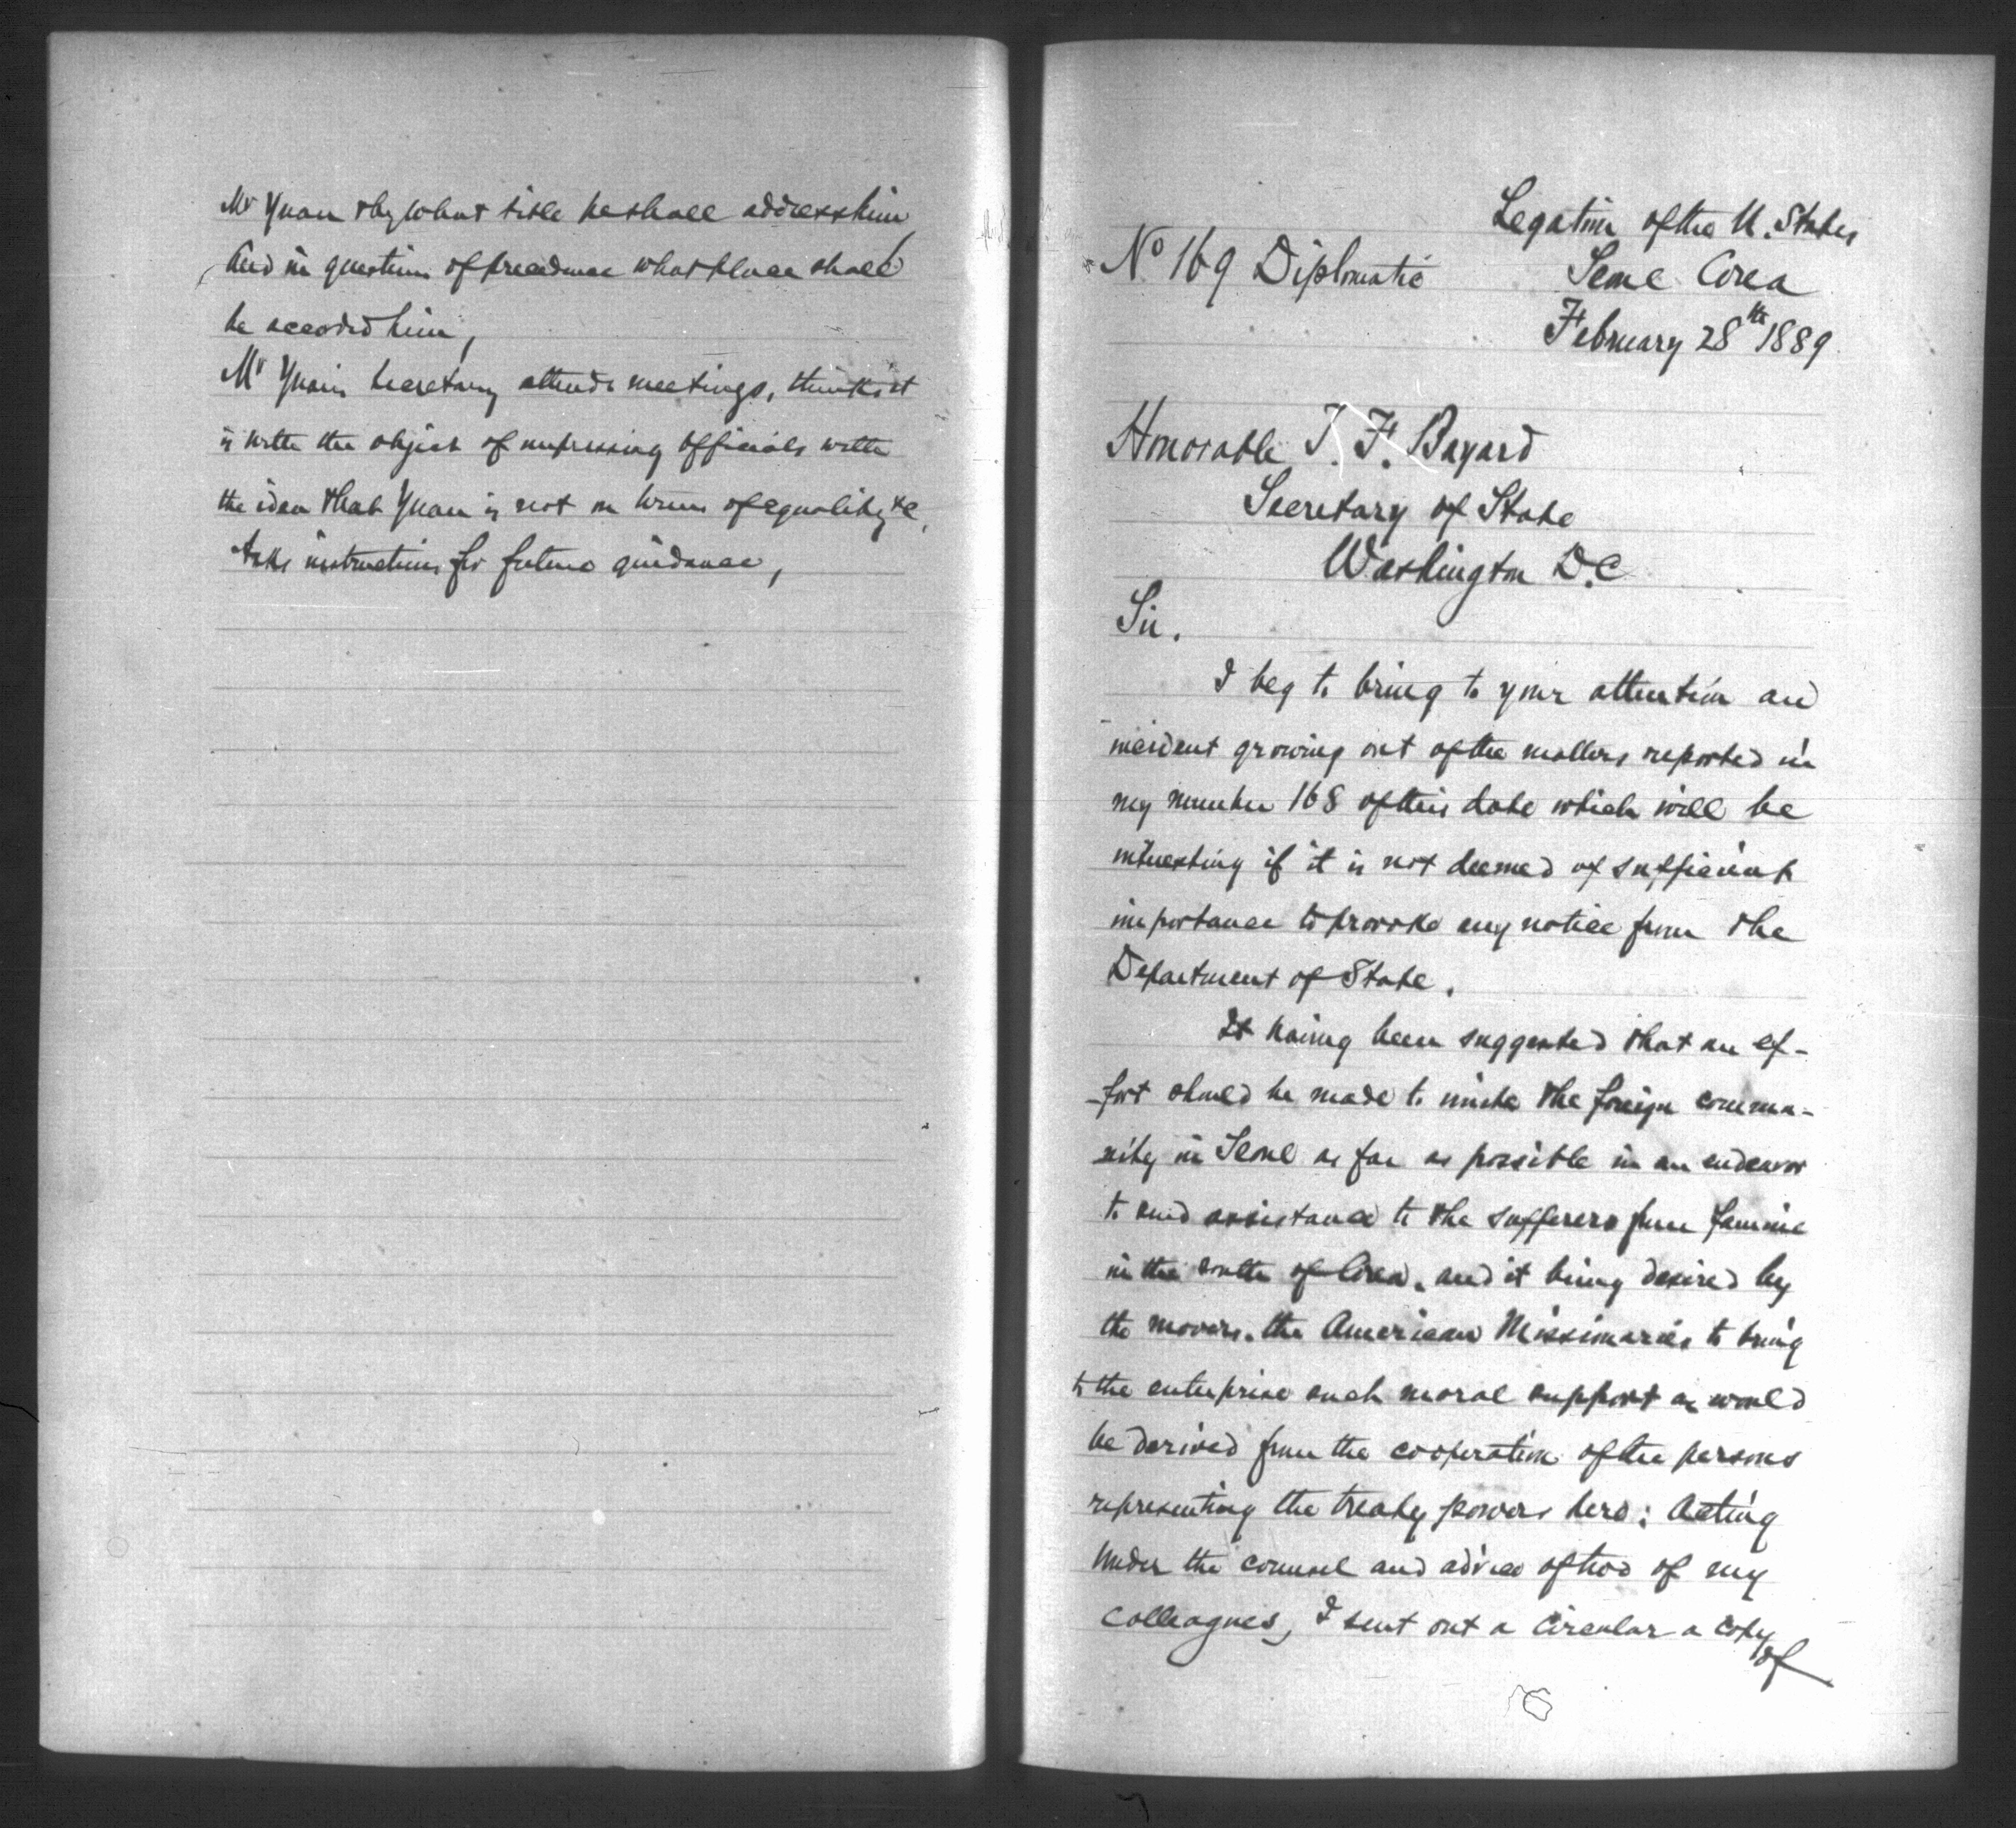 Mr Yuan & by what title he shall address him,
And in questions of precedence what place shall
be accorded him,
Mr Yuan's Secretary attends meetings, thinks it
is with the object of impressing officials with
the idea that Yuan is not on terms of equality &c,
Asks instructions for future guidance,
Legation of the U. States
No 169 Diplomatic
Seoul Corea
February 28th 1889
Honorable T. F. Bayard
Secretary of State
Washington D.C
Sir.
I beg to bring to your attention an
incident growing out of the matters reported in
my number 168 of this date which will be
interesting if it is not deemed of sufficient
importance to provoke any notice from the
Department of State.
It having been suggested that an ef-
-fort should be made to unite the foreign commu-
nity in Seoul as far as possible in an endeavor
to send assistance to the sufferers from famine
in the south of Corea, and it being desired by
the movers, the American Missionaries to bring
to the enterprise such moral support as would
be derived from the cooperation of the persons
representing the treaty powers here; Acting
under the counsel and advice of two of my
colleagues, I sent out a Circular a copy
of